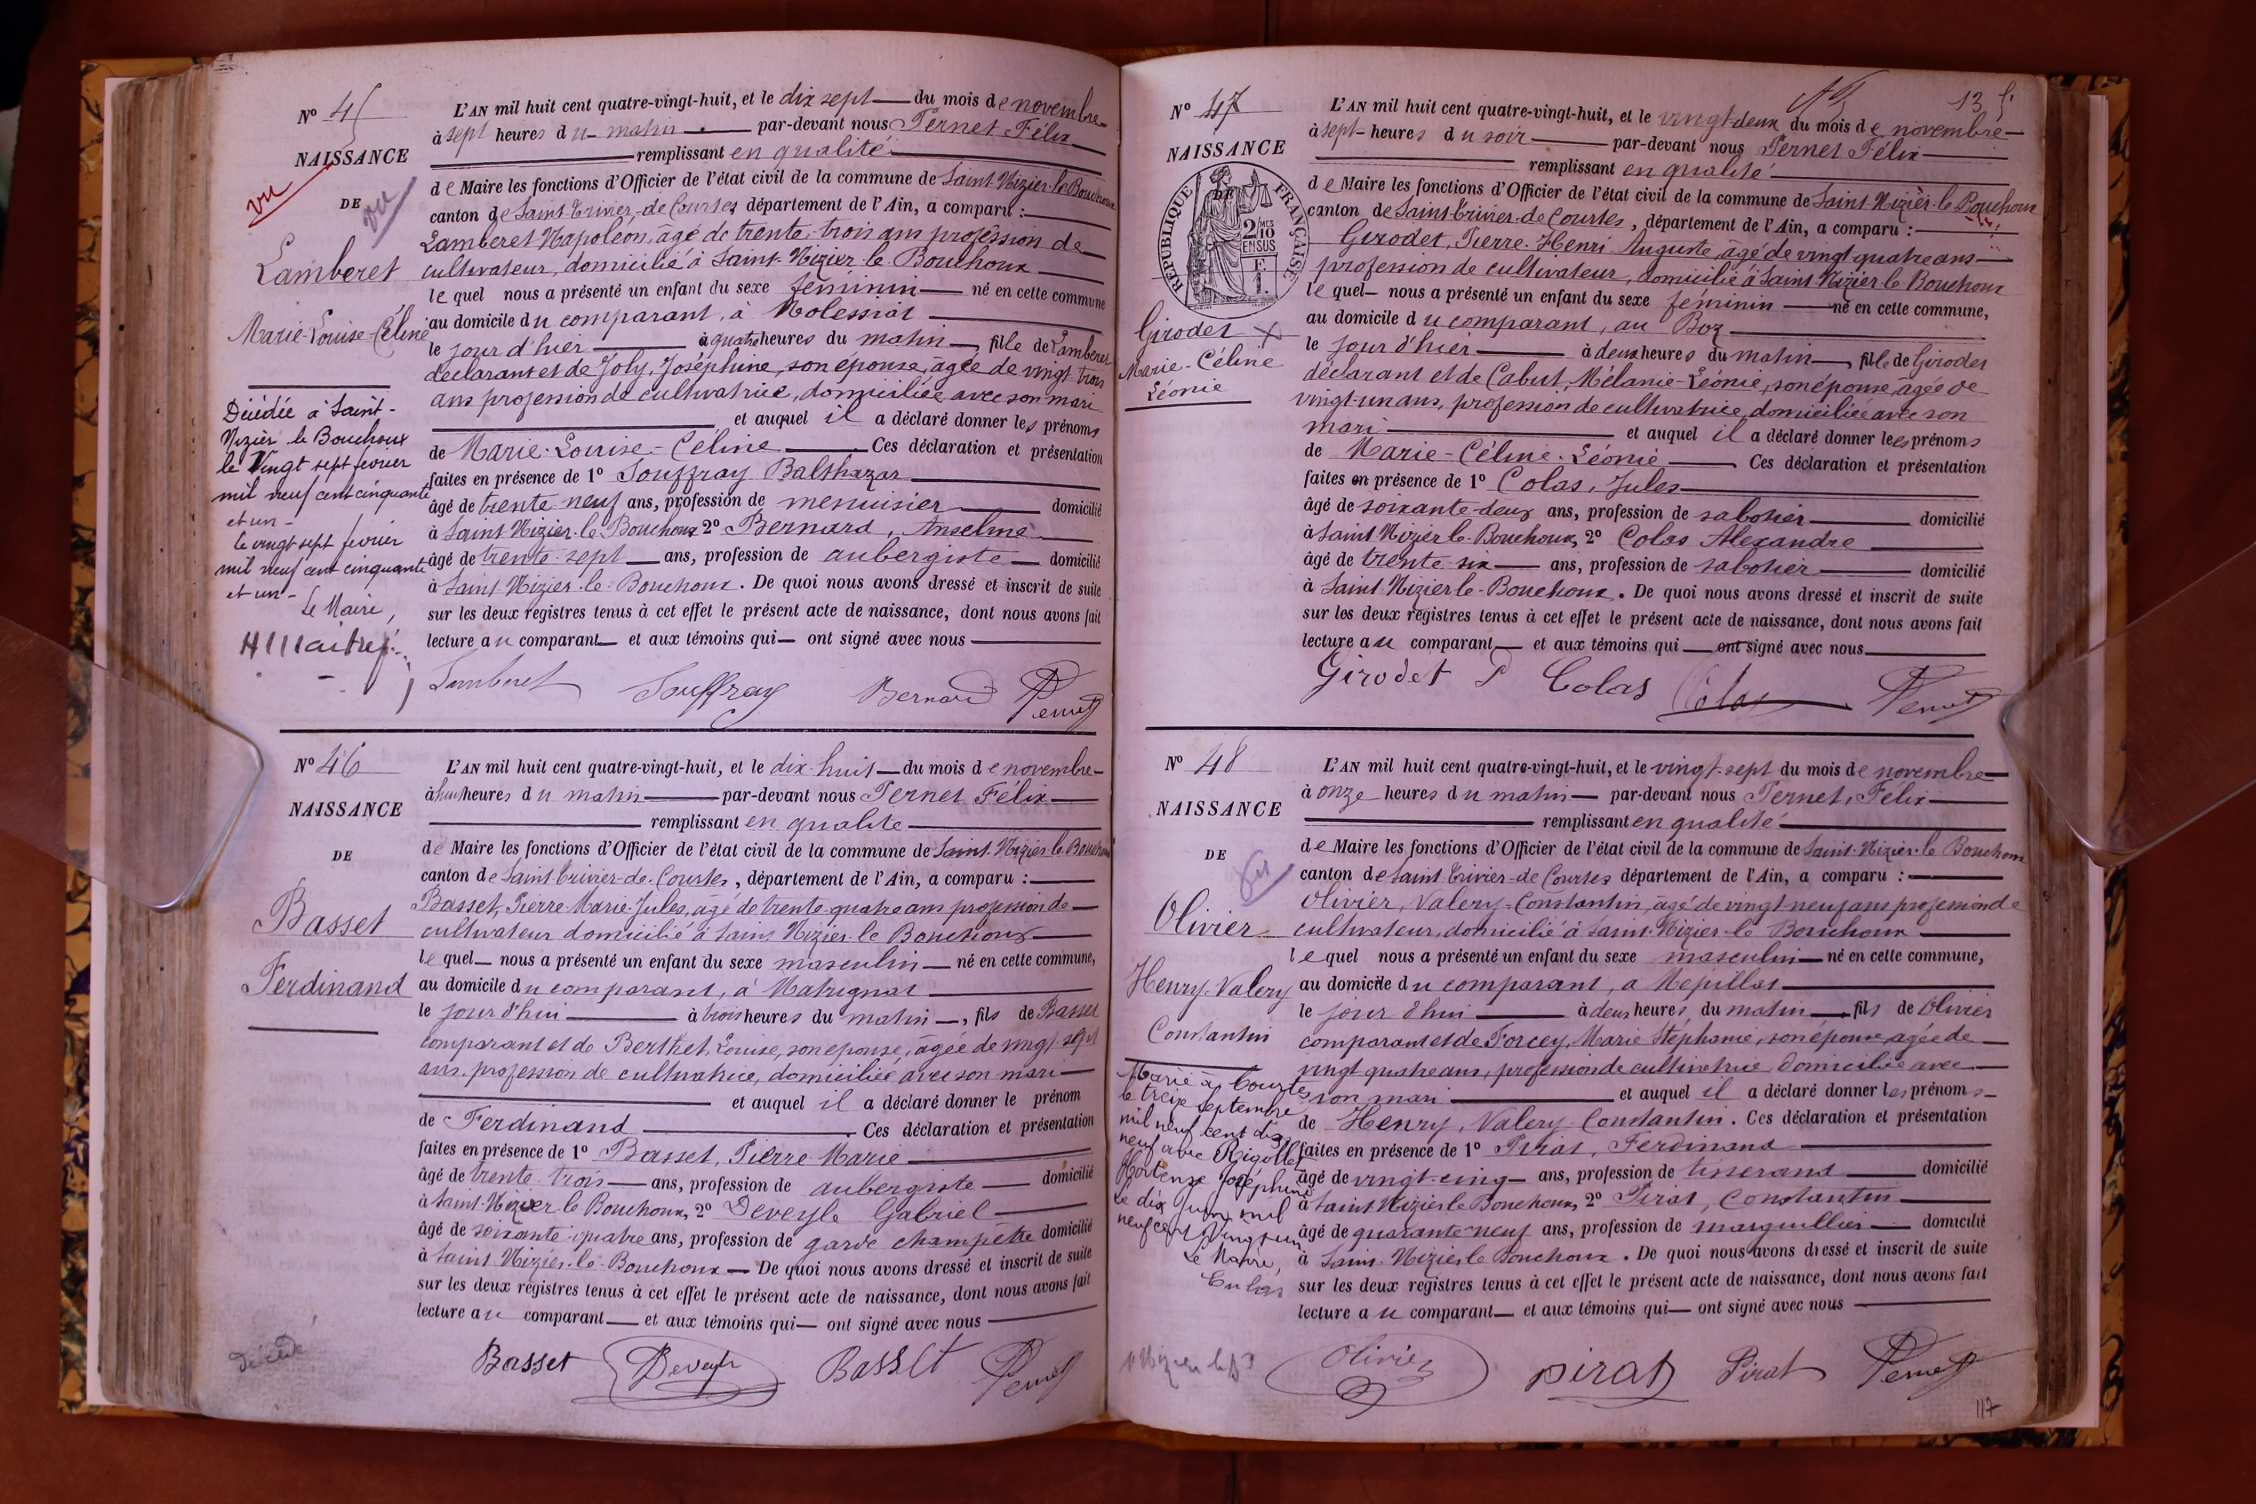 Nº 45
NAISSANCE
vu
DE
vu
Lamberet
Marie-Louise-Céline
Décédée à Saint-
Nizier le Bouchoux
le Vingt sept fevrier
mil neuf cent cinquante
et un -
le vingt sept fevrier
mil neuf cent cinquante
et un -
Le Maire,
L'AN mil huit cent quatre-vingt-huit, et le dix sept du mois de novembre
à sept heures du matin par-devant nous Pernet Félix
remplissant en qualité
de Maire les fonctions d'Officier de l'état civil de la commune de Saint-Nizier-le-Bouchoux
canton de Saint-Trivier-de-Courtes département de l'Ain, a comparu :
Lamberet Napoléon, âgé de trente-trois ans profession de
cultivateur, domicilié à Saint-Nizier-le-Bouchoux
lequel nous a présenté un enfant du sexe féminin né en cette commune
au domicile du comparant, à Molessiat
le jour d'hier à quatre heures du matin, fille de Lamberet
déclarant et de Joly, Joséphine, son épouse, âgée de vingt-trois
ans profession de cultivatrice, domiciliée avec son mari
et auquel il a déclaré donner les prénoms
de Marie-Louise-Céline Ces déclaration et présentation
faites en présence de 1º Souffray Balthazar
âgé de trente-neuf ans, profession de menuisier domicilié
à Saint-Nizier-le-Bouchoux 2º Bernard, Anselme
âgé de trente-sept ans, profession de aubergiste domicilié
à Saint Nizier-le-Bouchoux. De quoi nous avons dressé et inscrit de suite
sur les deux registres tenus à cet effet le présent acte de naissance, dont nous avons fait
lecture au comparant et aux témoins qui ont signé avec nous
Lamberet Souffray Bernard Pernet
Nº 46
NAISSANCE
DE
Basset
Ferdinand
décédé
L'AN mil huit cent quatre-vingt-huit, et le dix-huit du mois de novembre
à huit heures du matin par-devant nous Pernet Félix
remplissant en qualité
de Maire les fonctions d'Officier de l'état civil de la commune de Saint-Nizier-le-Bouchoux
canton de Saint Trivier-de-Courtes, département de l'Ain, a comparu :
Basset, Pierre-Marie-Jules, agé de trente-quatre ans profession de
cultivateur domicilié à Saint Nizier-le Bouchoux
lequel nous a présenté un enfant du sexe masculin né en cette commune,
au domicile du comparant, à Matrignat
le jour d'hui à trois heures du matin, fils de Basset
comparant et de Berthet, Louise, son épouse, âgée de vingt-sept
ans, profession de cultivatrice, domiciliée avec son mari
et auquel il a déclaré donner le prénom
de Ferdinand Ces déclaration et présentation
faites en présence de 1º Basset, Pierre Marie
âgé de trente-trois ans, profession de aubergiste domicilié
à Saint-Nizier-le Bouchoux, 2º Deveyle Gabriel
âgé de soixante-quatre ans, profession de garde champêtre domicilié
à Saint Nizier-le-Bouchoux De quoi nous avons dressé et inscrit de suite
sur les deux registres tenus à cet effet le présent acte de naissance, dont nous avons fait
lecture au comparant et aux témoins qui ont signé avec nous
Basset Deveyle Basset Pernet
13
Nº 47
NAISSANCE
DE
RÉPUBLIQUE FRANÇAISE
2 MES 10
EN SUS
Girodet X
Marie-Céline
Léonie
L'AN mil huit cent quatre-vingt-huit, et le vingt-deux du mois de novembre
à sept heures du soir par-devant nous Pernet Félix
remplissant en qualité
de Maire les fonctions d'Officier de l'état civil de la commune de Saint-Nizier-le Bouchoux
canton de Saint-Trivier-de Courtes, département de l'Ain, a comparu :
Girodet, Pierre-Henri Auguste, âgé de vingt-quatre ans
profession de cultivateur, domicilié à Saint Nizier le Bouchoux
lequel nous a présenté un enfant du sexe féminin né en cette commune,
au domicile du comparant, au Boz
le jour d'hier à deux heures du matin, fille de Girodet
déclarant et de Cabut, Mélanie-Léonie, son épouse, âgée de
vingt-un ans, profession de cultivatrice, domiciliée avec son
mari et auquel il a déclaré donner les prénoms
de Marie-Céline-Léonie Ces déclaration et présentation
faites en présence de 1º Colas, Jules
âgé de soixante-deux ans, profession de sabotier domicilié
à Saint Nizier le-Bouchoux, 2º Colas Alexandre
âgé de trente-six ans, profession de sabotier domicilié
à Saint Nizier le-Bouchoux. De quoi nous avons dressé et inscrit de suite
sur les deux registres tenus à cet effet le présent acte de naissance, dont nous avons fait
lecture au comparant et aux témoins qui ont signé avec nous
Girodet P Colas Colas Pernet
Nº 48
NAISSANCE
DE
Olivier
Henry-Valery
Constantin
Marié à Courtes
le treize septembre
mil neuf cent dix
neuf avec Rigollet
Hortense Joséphine
Le dix Juin mil
neuf cent vingt un
Le Maire,
L'AN mil huit cent quatre-vingt-huit, et le vingt-sept du mois de novembre
à onze heures du matin par-devant nous Pernet, Félix
remplissant en qualité
de Maire les fonctions d'Officier de l'état civil de la commune de Saint-Nizier-le Bouchoux
canton de Saint Trivier-de Courtes département de l'Ain, a comparu :
Olivier, Valery-Constantin, agé de vingt neuf ans profession de
cultivateur, domicilié à Saint-Nizier-le Bouchoux
lequel nous a présenté un enfant du sexe masculin né en cette commune,
au domicile du comparant, à Mépillat
le jour d'hui à deux heures du matin, fils de Olivier
comparant et de Forcey, Marie Stéphanie, son épouse, agée de
vingt quatre ans, profession de cultivatrice domiciliée avec
son mari et auquel il a déclaré donner les prénoms
de Henry, Valery-Constantin. Ces déclaration et présentation
faites en présence de 1º Pirat, Ferdinand
âgé de vingt-cinq ans, profession de tisserand domicilié
à Saint Nizier le Bouchoux, 2º Pirat, Constantin
âgé de quarante-neuf ans, profession de marguillier domicilié
à Saint-Nizier le Bouchoux. De quoi nous avons dressé et inscrit de suite
sur les deux registres tenus à cet effet le présent acte de naissance, dont nous avons fait
lecture au comparant et aux témoins qui ont signé avec nous
Olivier Pirat Pirat Pernet
117